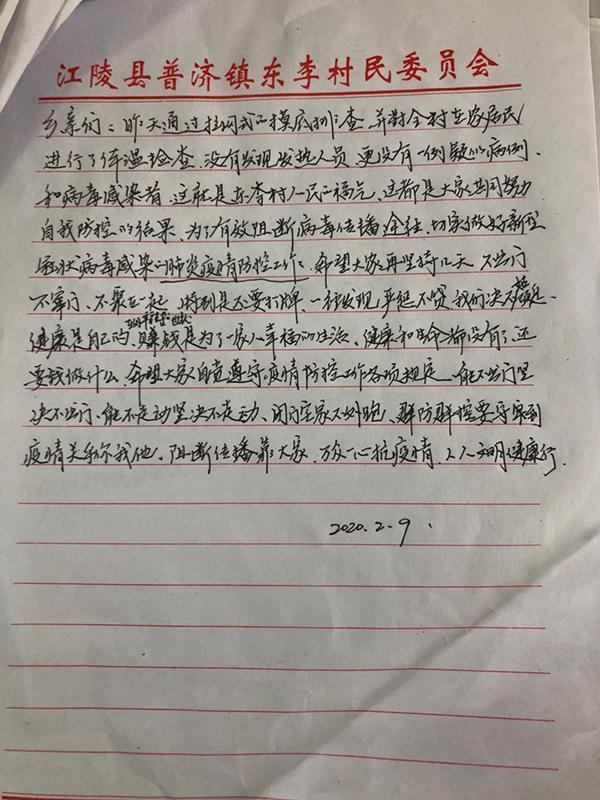 江陵县普济镇东李村民委员会
乡亲们：昨天通过拉网式的摸底排查，并对全村在家居民
进行了体温检查，没有发现发热人员，更没有一例疑似病例，
和病毒感染者，这就是东李村人民的福气，这都是大家共同努力
自我防控的结果，为了有效阻断病毒传播途径，切实做好新型
冠状病毒感染的肺炎疫情防控工作，希望大家再坚持几天，不出门
不窜门，不聚在一起，特别是不要打牌，一经发现，严惩不贷，我们决不
健康是自己的，赚钱是为了一家人幸福的生活，健康和生命都没有了，还
要钱做什么，希望大家自觉遵守疫情防控工作各项规定，能不出门坚
决不出门，能不走动坚决不走动，闭门宅家不外跑，群防群控要导实到
疫情关系你我他，阻断传播靠大家，万众一心抗疫情，人人文明健康行.
2020.2.9.